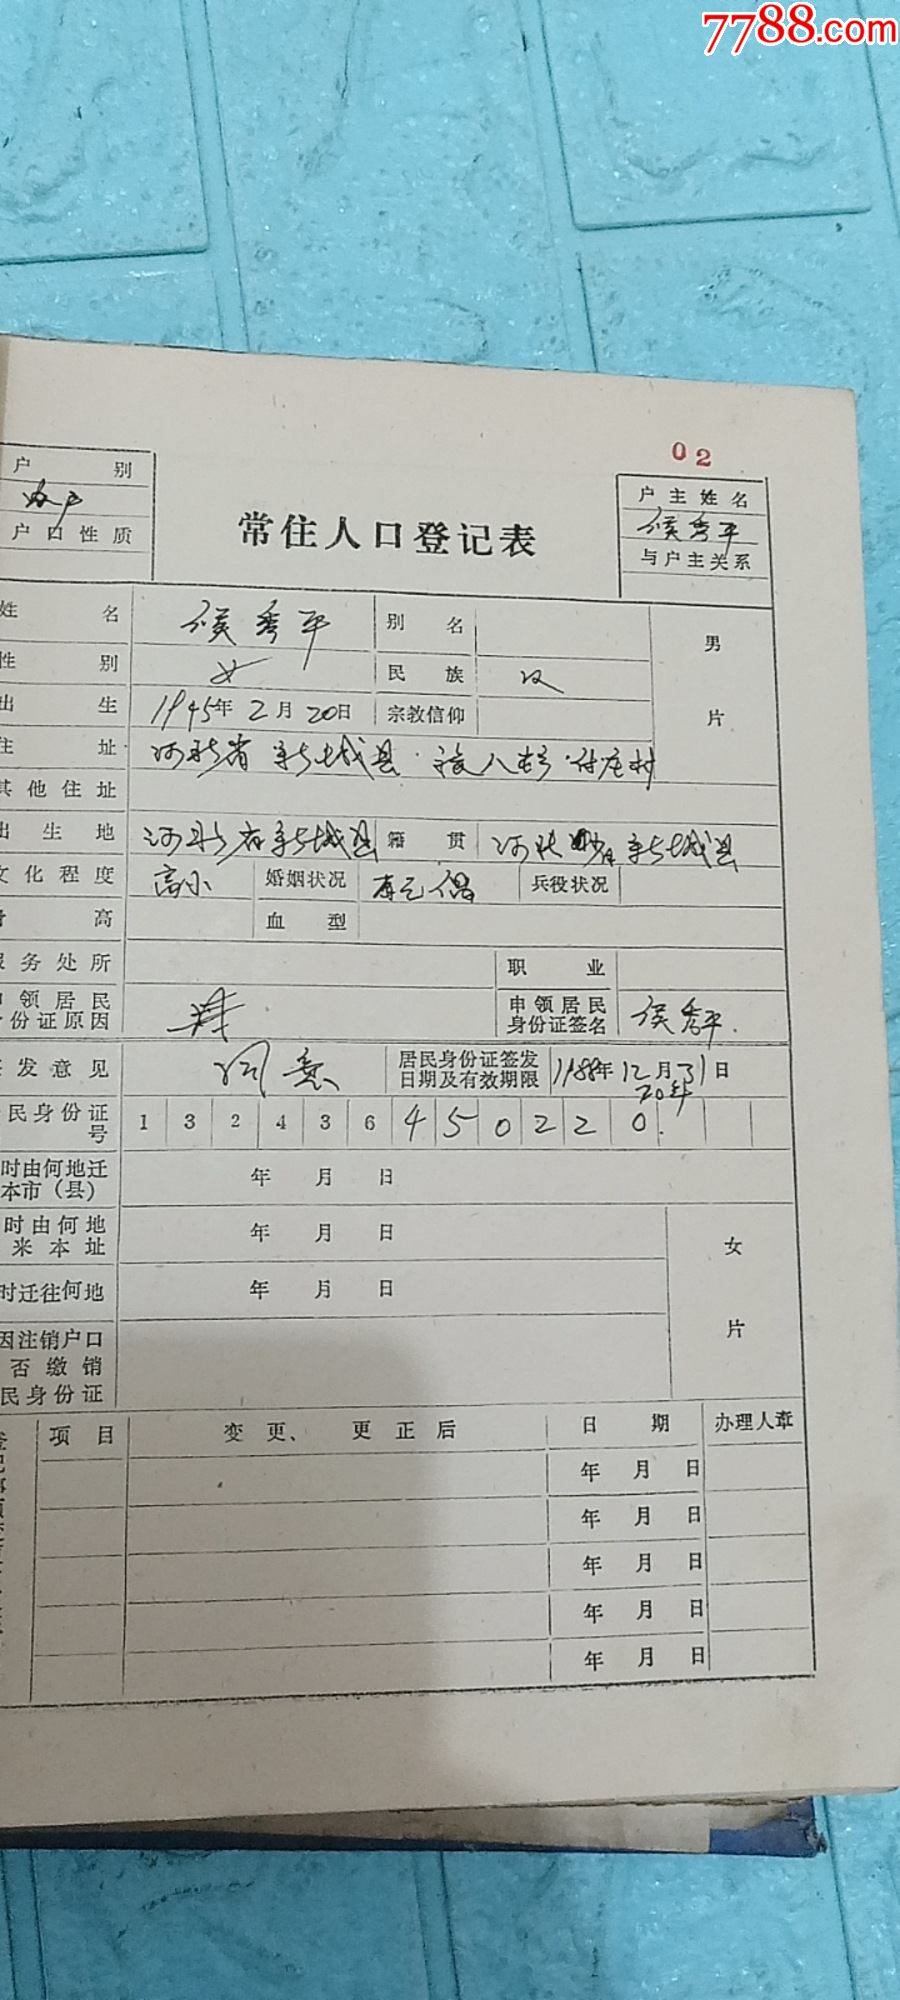 7788.com
02
户 别
户口性质
常住人口登记表
户主姓名
侯秀平
与户主关系
姓 名 侯秀平 别 名 男
性 别 女 民 族 汉
出 生 1945年2月20日 宗教信仰 片
住 址 河北省新城县
其他住址
出生地 河北省新城县 籍 贯 河北省新城县
文化程度 高小 婚姻状况 有配偶 兵役状况
身 高 血 型
服务处所 职 业
申领居民身份证原因 申领居民身份证签名 侯秀平
签发意见 同意 居民身份证签发日期及有效期限 1988年12月31日
20年
民身份证号 1 3 2 4 3 6 4 5 0 2 2 0
时由何地迁 年 月 日
本市(县)
时由何地 年 月 日 女
来本址
时迁往何地 年 月 日 片
因注销户口
否缴销
民身份证
项 目 变更、更正后 日 期 办理人章
年 月 日
年 月 日
年 月 日
年 月 日
年 月 日